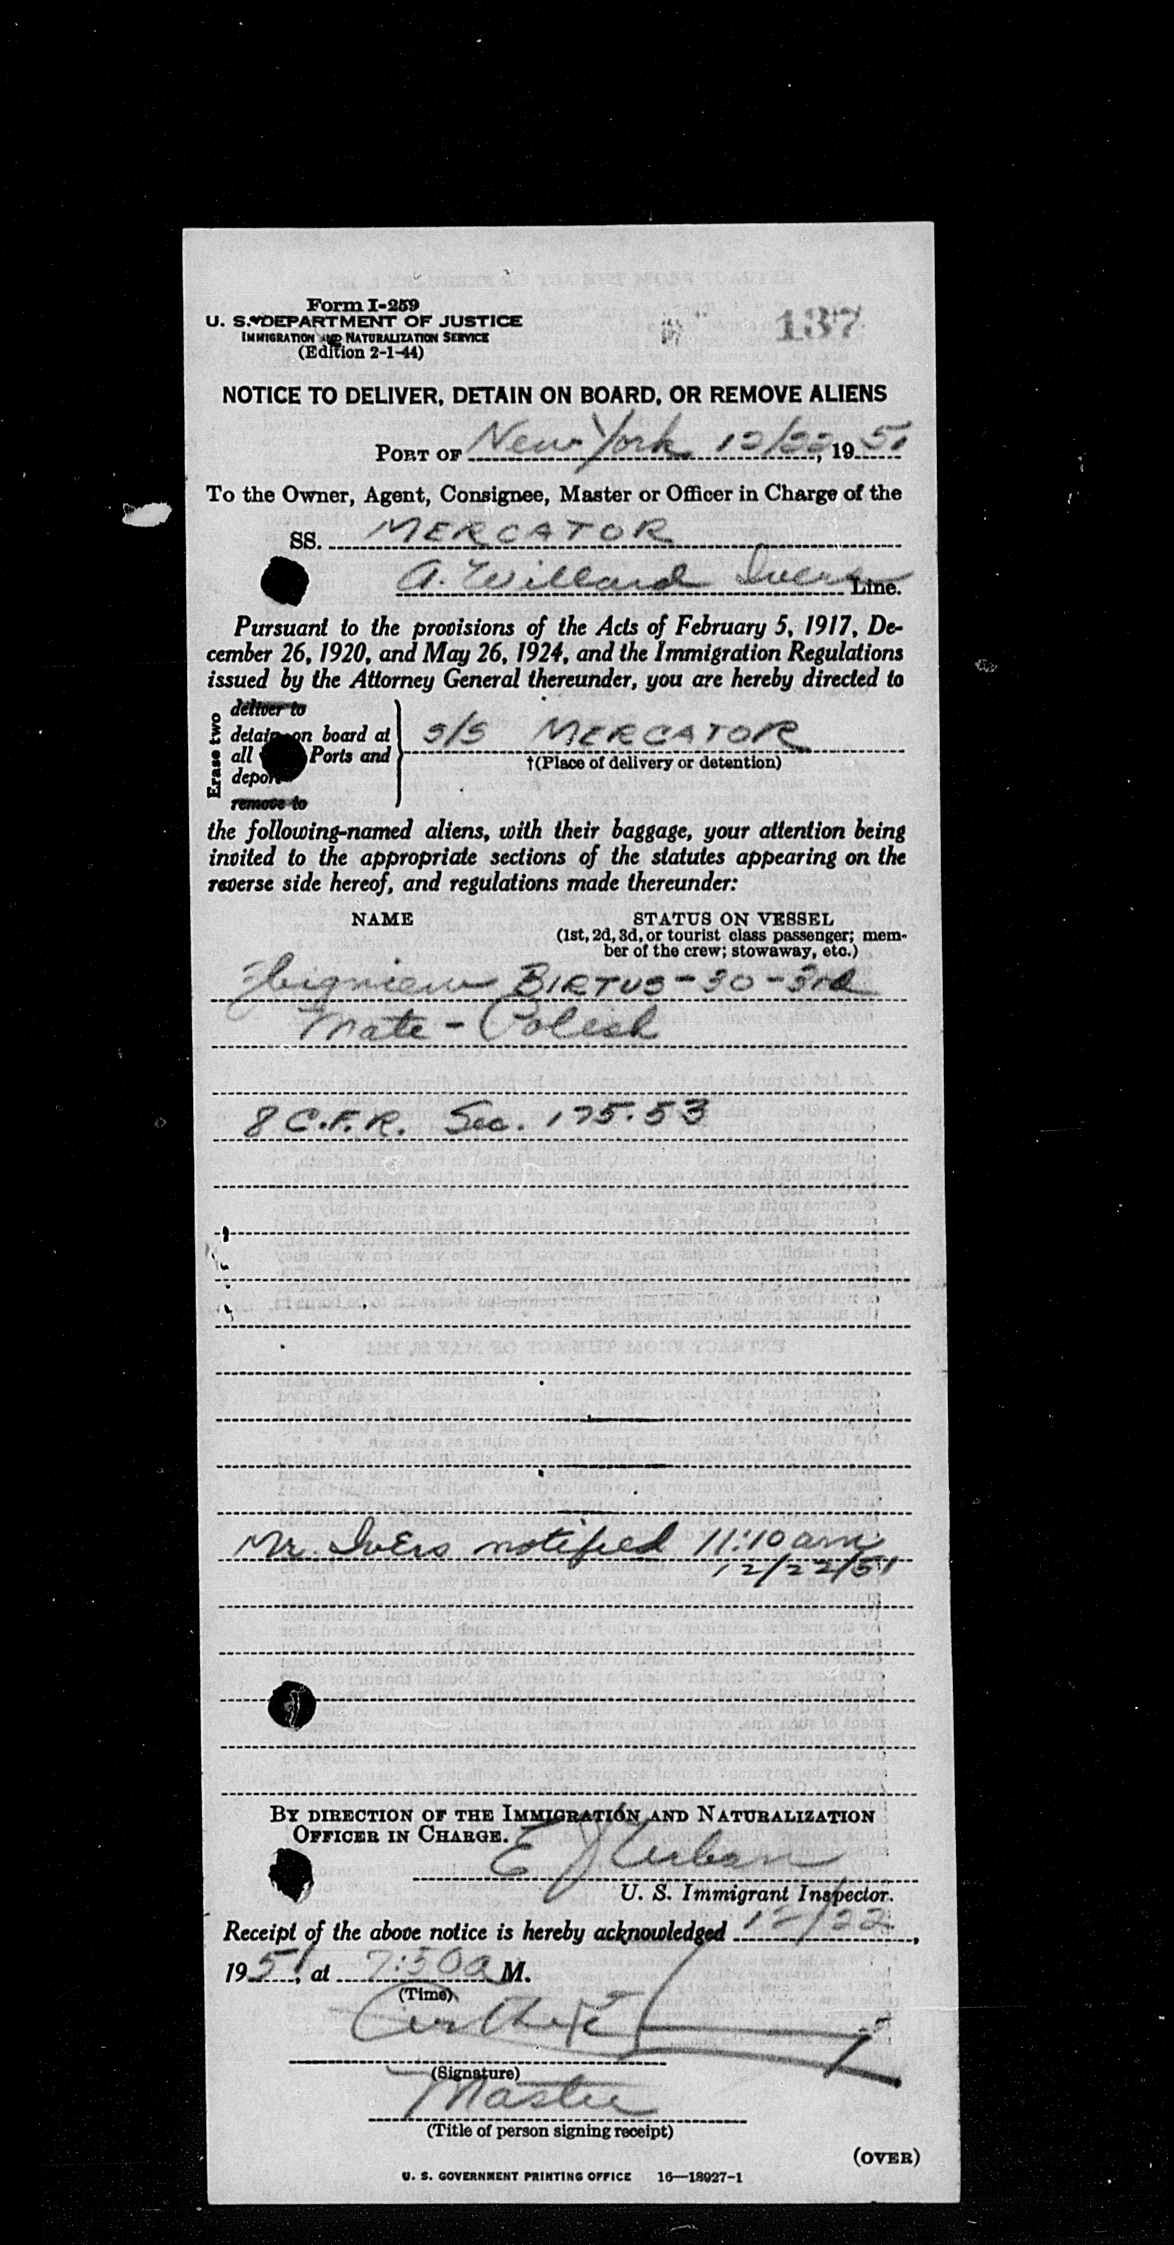 Form I-259
U. S. DEPARTMENT OF JUSTICE
IMMIGRATION AND NATURALIZATION SERVICE
(Edition 2-1-44)
137
NOTICE TO DELIVER, DETAIN ON BOARD, OR REMOVE ALIENS
PORT OF New York 12/22, 1951
To the Owner, Agent, Consignee, Master or Officer in Charge of the
SS. MERCATOR
A. Willard Ivers Line.
Pursuant to the provisions of the Acts of February 5, 1917, De-
cember 26, 1920, and May 26, 1924, and the Immigration Regulations
issued by the Attorney General thereunder, you are hereby directed to
Erase two
deliver to
detain on board at
all Ports and
deport
remove to
S/S MERCATOR
†(Place of delivery or detention)
the following-named aliens, with their baggage, your attention being
invited to the appropriate sections of the statutes appearing on the
reverse side hereof, and regulations made thereunder:
NAME STATUS ON VESSEL
(1st, 2d, 3d, or tourist class passenger; mem-
ber of the crew; stowaway, etc.)
Zbigniew BIRTUS - 30 - 3rd
Mate - Polish
8 C.F.R. Sec. 175.53
Mr. IvErs notified 11:10 am
12/22/51
BY DIRECTION OF THE IMMIGRATION AND NATURALIZATION
OFFICER IN CHARGE.
E J Urban
U. S. Immigrant Inspector.
Receipt of the above notice is hereby acknowledged 12/22,
1951, at 7:50 a M.
(Time)
(Signature)
Master
(Title of person signing receipt)
(OVER)
U. S. GOVERNMENT PRINTING OFFICE 16—18927-1